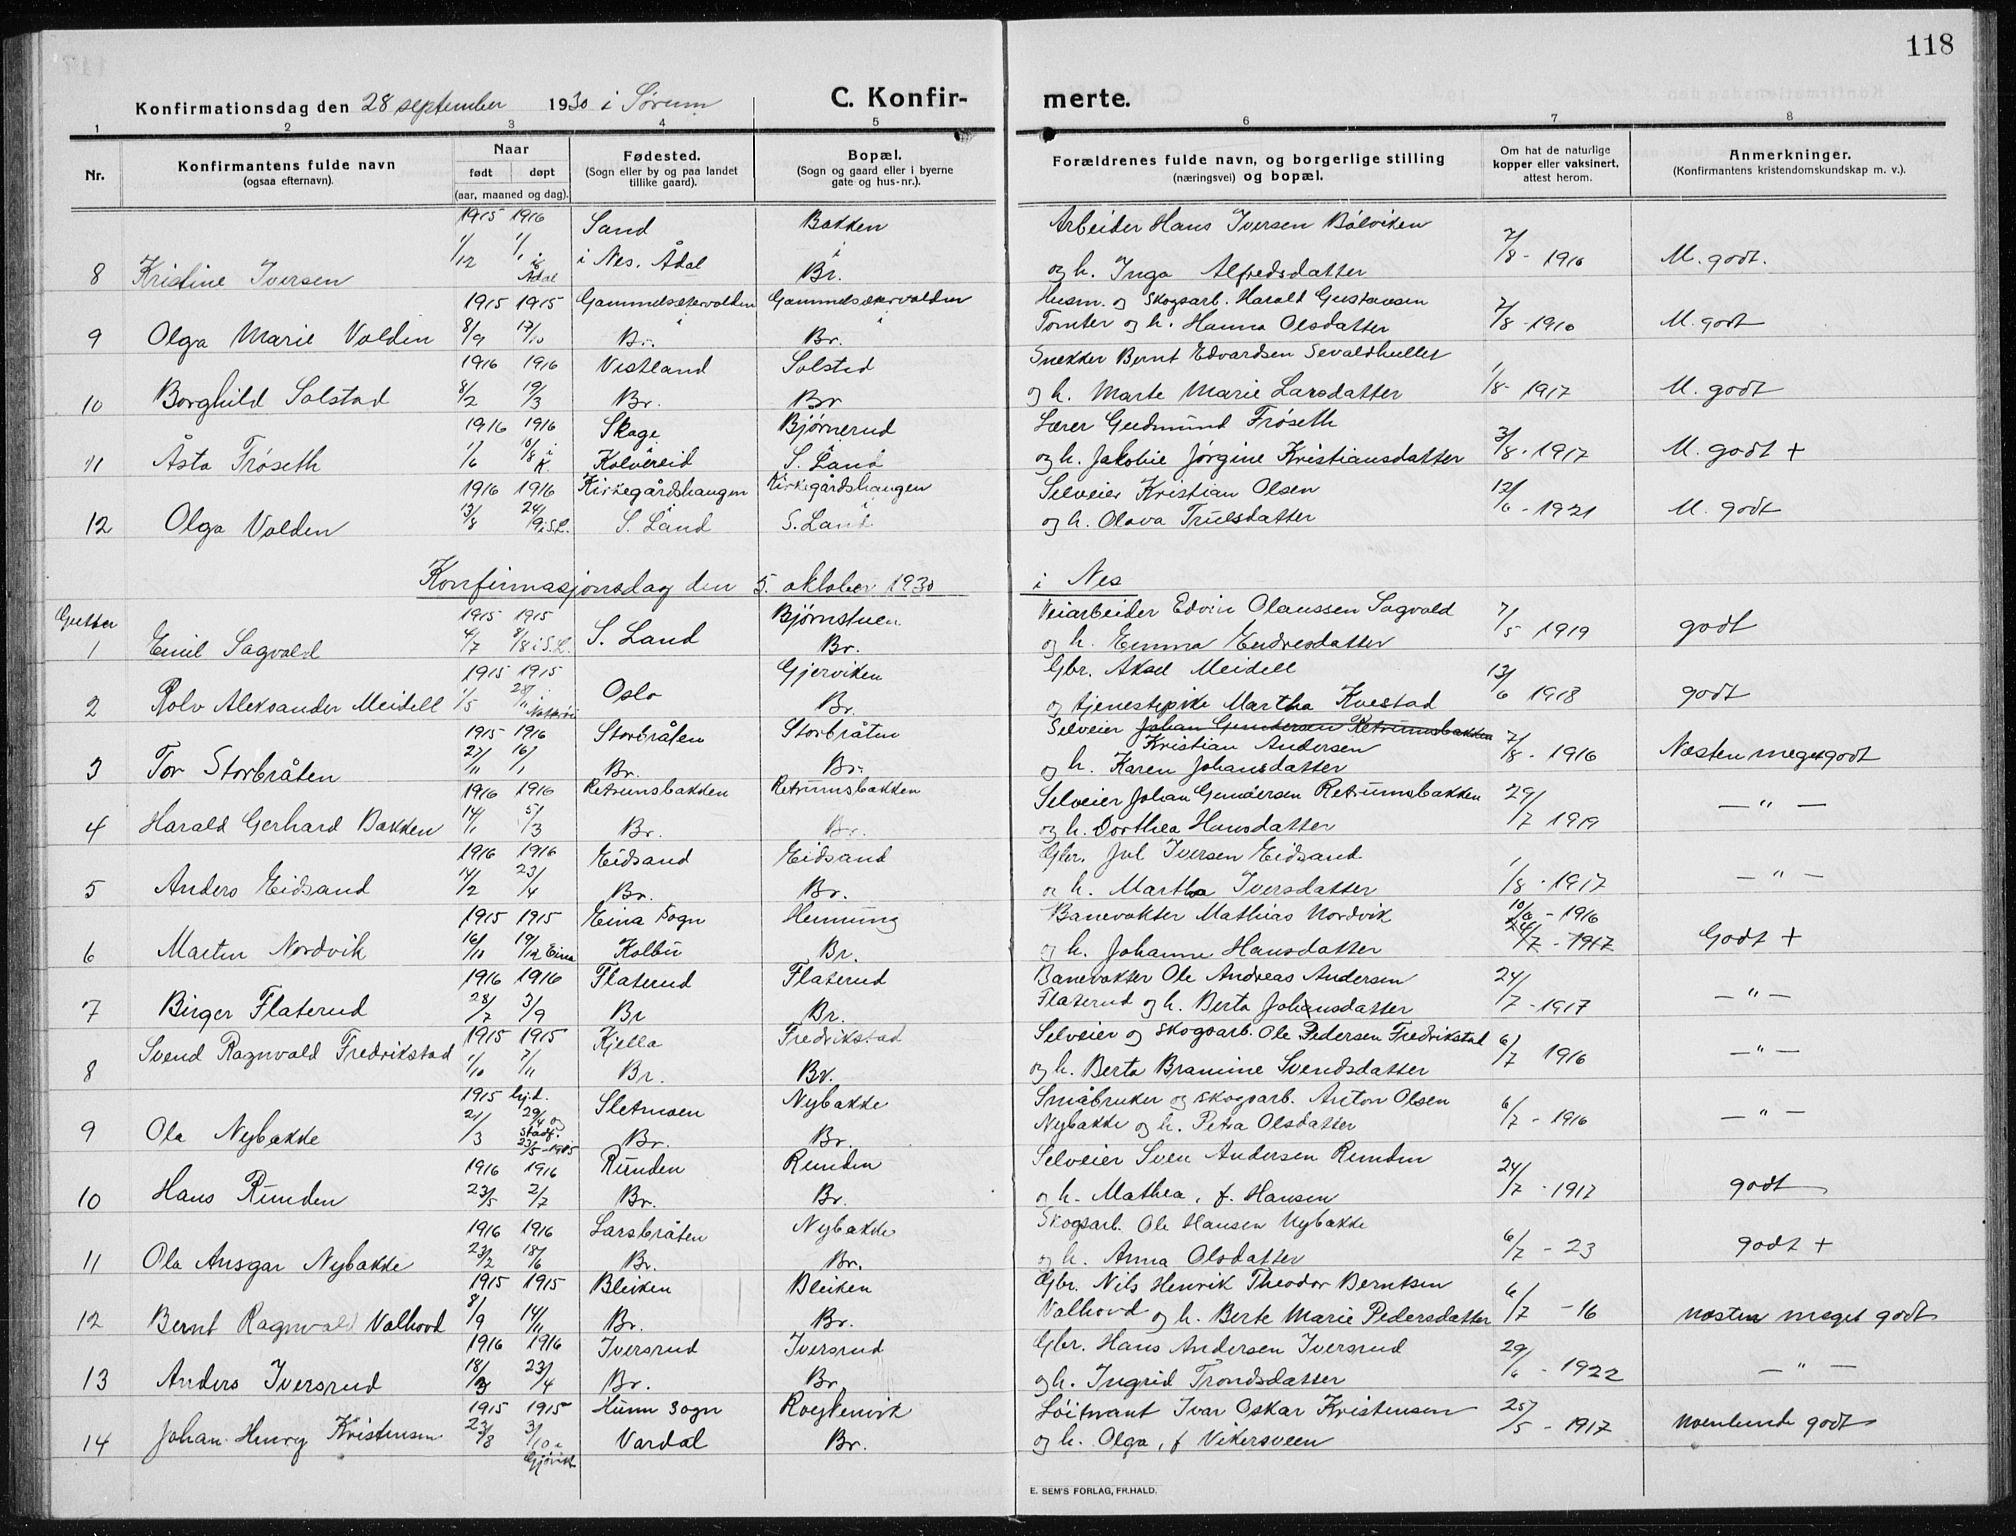 118
Konfirmationsdag den 28 september 1930 i Sørum C. Konfir- merte.
1 2 3 4 5 6 7 8
Nr.
Konfirmantens fulde navn
(ogsaa efternavn).
Naar
født døpt
(aar, maaned og dag).
Fødested.
(Sogn eller by og paa landet
tillike gaard).
Bopæl.
(Sogn og gaard eller i byerne
gate og hus-nr.).
Forældrenes fulde navn, og borgerlige stilling
(næringsvei) og bopæl.
Om hat de naturlige
kopper eller vaksinert,
attest herom.
Anmerkninger.
(Konfirmantens kristendomskundskap m. v.).
1915 1916 Sand Bakken Arbeider Hans Iversen Bølviken
8 Kristine Iversen 1/12 1/1 i Ådal i Nes, Ådal i Br. og h. Inga Alfredsdatter 7/8 - 1916 M. godt.
1915 1915 Gammelsætervolden Gammelsætervolden Husm. og Skogsarb. Harald Gustavsen
9 Olga Marie Volden 8/9 17/10 i Br. i Br. Tomter og h. Hanna Olsdatter 7/8 - 1916 M. godt
1916 1916 Vestland Solstad Snekker Bernt Edvardsen Sevaldhullet
10 Borghild Solstad 8/2 19/3 Br. Br og h. Marte Marie Larsdatter 1/8 - 1917 M. godt
1916 1916 Skage Bjørnerud Lærer Gudmund Frøseth
11 Åsta Frøseth 1/6 10/8 i K. Kolvereid S. Land og h. Jakobie Jørgine Kristiansdatter 3/8 - 1917 M. godt +
1916 1916 Kirkegårdshaugen Kirkegårdshaugen Selveier Kristian Olsen
12 Olga Volden 13/8 24/9 i S.L. i S. Land i S. Land og h. Olava Trulsdatter 12/6 - 1921 M. godt
Konfirmasjonsdag den 5. oktober 1930 i Nes
Gutter 1915 1915 Bjørnstuen Veiarbeider Edvin Olaussen Sagvold
1 Emil Sagvold 4/7 8/8 i S.L. S. Land Br. og h. Emma Endresdatter 7/5 1919 godt
1915 1915 Gjerviken Gbr. Aksel Meidell
2 Rolv Aleksander Meidell 1/5 28/11 i Oslo Br. og tjenestepike Martha Kvestad 13/6 1918 godt
1915 1916 Storbråten Storbråten Selveier Johan Gundersen Retrumsbakken
Kristian Andersen
3 Tor Storbråten 27/11 16/1 Br. Br. og h. Karen Johansdatter 7/8 - 1916 Næsten meget godt
1916 1916 Retrumsbakken Retrumsbakken Selveier Johan Gundersen Retrumsbakken
4 Harald Gerhard Bakken 14/1 5/3 Br. Br. og h. Dorthea Hansdatter 29/7 1919 — " —
1916 1916 Eidsand Eidsand Gbr. Jul Iversen Eidsand
5 Anders Eidsand 14/2 23/4 Br. Br. og h. Martha Iversdatter 1/8 - 1917 — " —
1915 1915 Eina Sogn Hennung Banevokter Mathias Nordvik 10/6 - 1916
6 Martin Nordvik 16/10 19/12 Eina Kolbu Br. og h. Johanne Hansdatter 24/7 - 1917 Godt +
1916 1916 Flaterud Flaterud Banevokter Ole Andreas Andersen
7 Birger Flaterud 28/7 3/9 Br Br. Flaterud og h. Berta Johansdatter 24/7 - 1917 — " —
1915 1915 Kjella Fredrikstad Selveier og Skogsarb. Ole Pedersen Fredrikstad
8 Svend Ragnvald Fredrikstad 1/10 7/11 Br. Br. og h. Berta Bramine Svendsdatter 6/7 1916 — " —
1915 hj.d. Sletmoen Nybakke Småbruker og skogsarb. Anton Olsen
9 Ola Nybakke 21/3 29/4 og stadf. 23/5 - 1915 Br. Br. Nybakke og h. Petra Olsdatter 6/7 - 1916 — " —
1916 1916 Runden Runden Selveier Sven Andersen Runden
10 Hans Runden 23/5 2/7 Br. Br. og h. Mathea, f. Hansen 24/7 - 1917 godt
1916 1916 Larsbråten Nybakke Skogsarb. Ole Hansen Nybakke
11 Ola Ansgar Nybakke 23/2 18/6 Br. Br. og h. Anna Olsdatter 6/7 - 23 godt +
1915 1915 Bleiken Bleiken Gbr. Nils Henrik Theodor Berntsen
12 Bernt Ragnvald Valhovd 8/9 14/11 Br. Br. Valhovd og h. Berte Marie Pedersdatter 6/7 - 16 næsten meget godt
1916 1916 Iversrud Iversrud Gbr. Hans Andersen Iversrud
13 Anders Iversrud 18/3 23/4 Br. Br og h. Ingrid Trondsdatter 29/6 - 1922 — " —
1915 1915 Hunn Sogn Røykenvik Løitnant Ivar Oskar Kristensen
14 Johan Henry Kristensen 23/8 3/10 i Gjøvik Vardal Br. og h. Olga, f Vikersveen 25/5 - 1917 noenlunde godt
E. SEM'S FORLAG, FR.HALD.